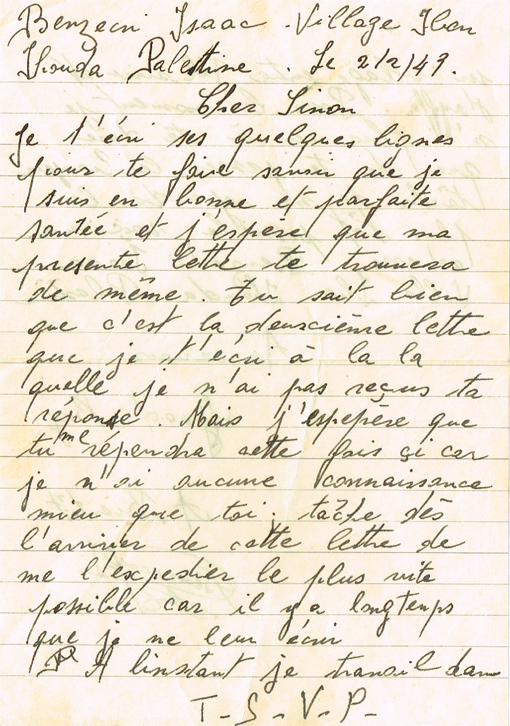 Benzecri Isaac. Village Iben
Ihouda Palestine. Le 2/2/49.
Cher Simon
Je t'écri ses quelques lignes
pour te faire savoir que je
suis en bonne et parfaite
santée et j'espère que ma
presente lettre te trouvera
de même. Tu sait bien
que c'est la deuxcième lettre
que je t'écri à la la
quelle je n'ai pas reçus ta
réponse. Mais j'espepère que
tu me répendra cette fois çi car
je n'ai aucune connaissance
mieu que toi; tâche dès
l'arriver de cette lettre de
me l'expedier le plus vite
possible car il y a longtemps
que je ne leur écri
A linstant je travail dans
T-S-V-P-